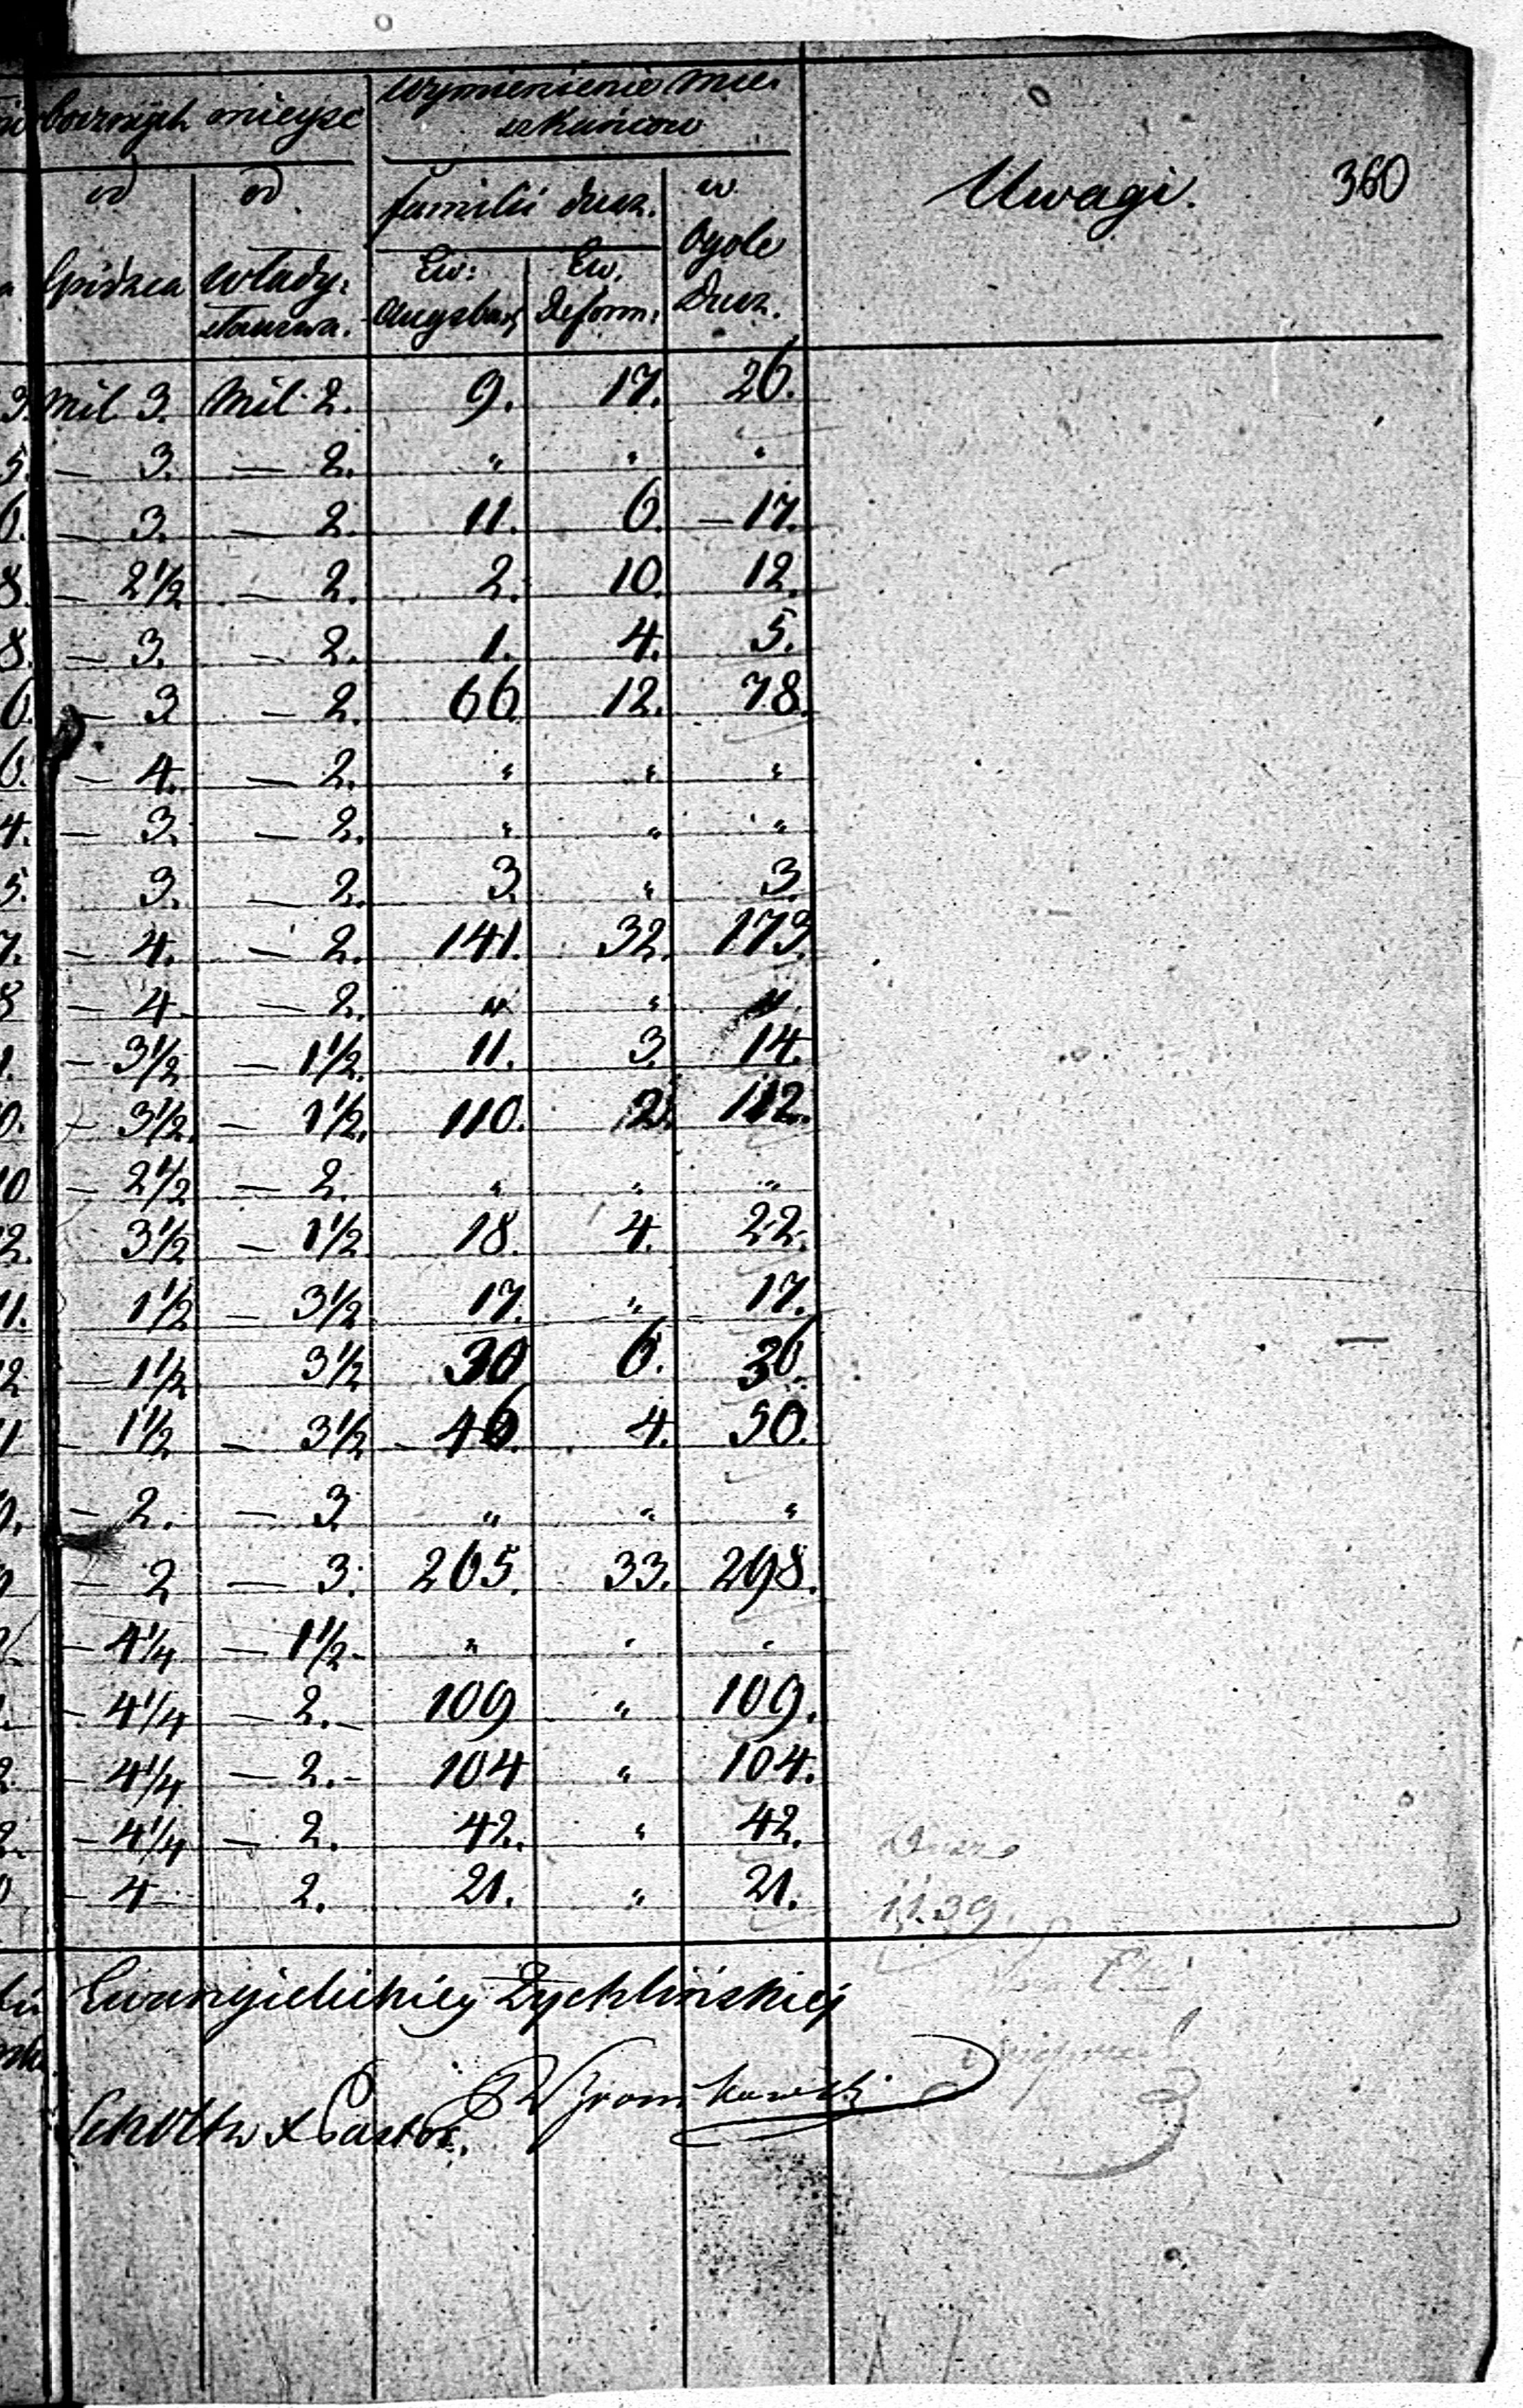 bocznych mieysc
Wymienienie miesz
kańcow
Uwagi. 360
od od familii dusz. w
Ogole
Dusz.
Spidzca Włady:
sława.
Ew: Augsbur: Ew. Reform:
3. Mil 3. Mil 2. 9. 17. 26.
5. — 3. — 2. " " "
0. — 3. — 2. 11. 6. — 17.
8. — 2½ — 2. 2. 10. 12.
8. — 3. — 2. 1. 4. 5.
0. — 3 — 2. 66 12. 78.
0. — 4. — 2. " " "
4. — 3. — 2. " " "
5. 3. — 2. 3. " 3.
7. — 4. — 2. 141. 32. 173.
8 — 4 — 2. " " "
1. — 3½ — 1½. 11. 3. 14.
0. — 3½. — 1½. 110. 2. 112.
10 — 2½ — 2. " " "
2. 3½ — 1½ 18. 4. 22.
11. 1½ — 3½ 17. " 17.
2 — 1½ 3½ 30 6. 36.
1 — 1½ — 3½ 46. 4. 50.
0. — 2. — 3 " " "
— 2 — 3. 265. 33. 298.
— 4¼ — 1½ " " "
— 4¼ — 2. 109 " 109.
2. — 4¼ — 2. 104 " 104.
2. — 4¼ — 2. 42. " 42.
0 — 4 2. 21. " 21.
Dusz
1139.
Ewangielickiey Żychlińskiej
Pastor.